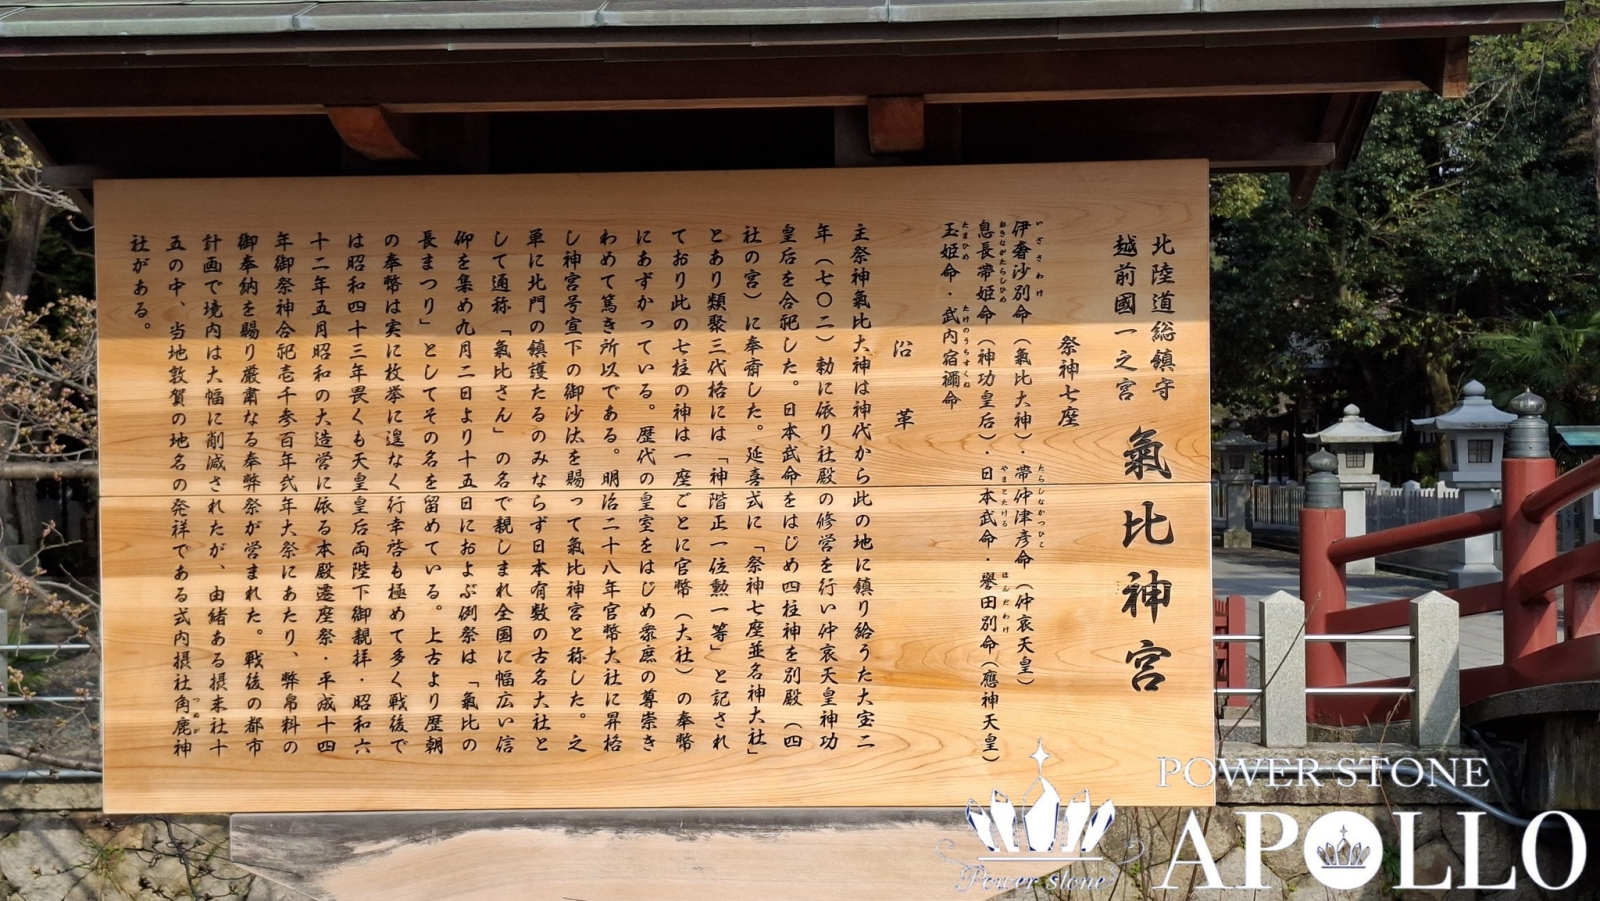 北陸道総鎮守
越前國一之宮
氣比神宮
祭神七座
いざさわけ
伊奢沙別命(氣比大神)・帶仲津彦命(仲哀天皇)
たらしなかつひこ
おきながたらしひめ
息長帶姫命(神功皇后)・日本武命・譽田別命(應神天皇)
やまとたける
ほんだわけ
たまひめ
玉姫命・武内宿禰命
たけのうちすくね
沿革
主祭神氣比大神は神代から此の地に鎮り給うた大宝二
年(七〇二)勅に依り社殿の修営を行い仲哀天皇神功
皇后を合祀した。日本武命をはじめ四柱神を別殿(四
社の宮)に奉斎した。延喜式に「祭神七座並名神大社」
とあり類聚三代格には「神階正一位勲一等」と記され
ており此の七柱の神は一座ごとに官幣(大社)の奉幣
にあずかっている。歴代の皇室をはじめ衆庶の尊崇き
わめて篤き所以である。明治二十八年官幣大社に昇格
し神宮号宣下の御沙汰を賜って氣比神宮と称した。之
単に北門の鎮護たるのみならず日本有数の古名大社と
して通称「氣比さん」の名で親しまれ全国に幅広い信
仰を集め九月二日より十五日におよぶ例祭は「氣比の
長まつり」としてその名を留めている。上古より歴朝
の奉幣は実に枚挙に遑なく行幸啓も極めて多く戦後で
は昭和四十三年畏くも天皇皇后両陛下御親拝・昭和六
十二年五月昭和の大造営に依る本殿遷座祭・平成十四
年御祭神合祀壱千参百年弐年大祭にあたり、弊帛料の
御奉納を賜り厳粛なる奉弊祭が営まれた。戦後の都市
計画で境内は大幅に削減されたが、由緒ある摂末社十
五の中、当地敦賀の地名の発祥である式内摂社角鹿神
つぬが
社がある。
POWER STONE
APOLLO
Power stone